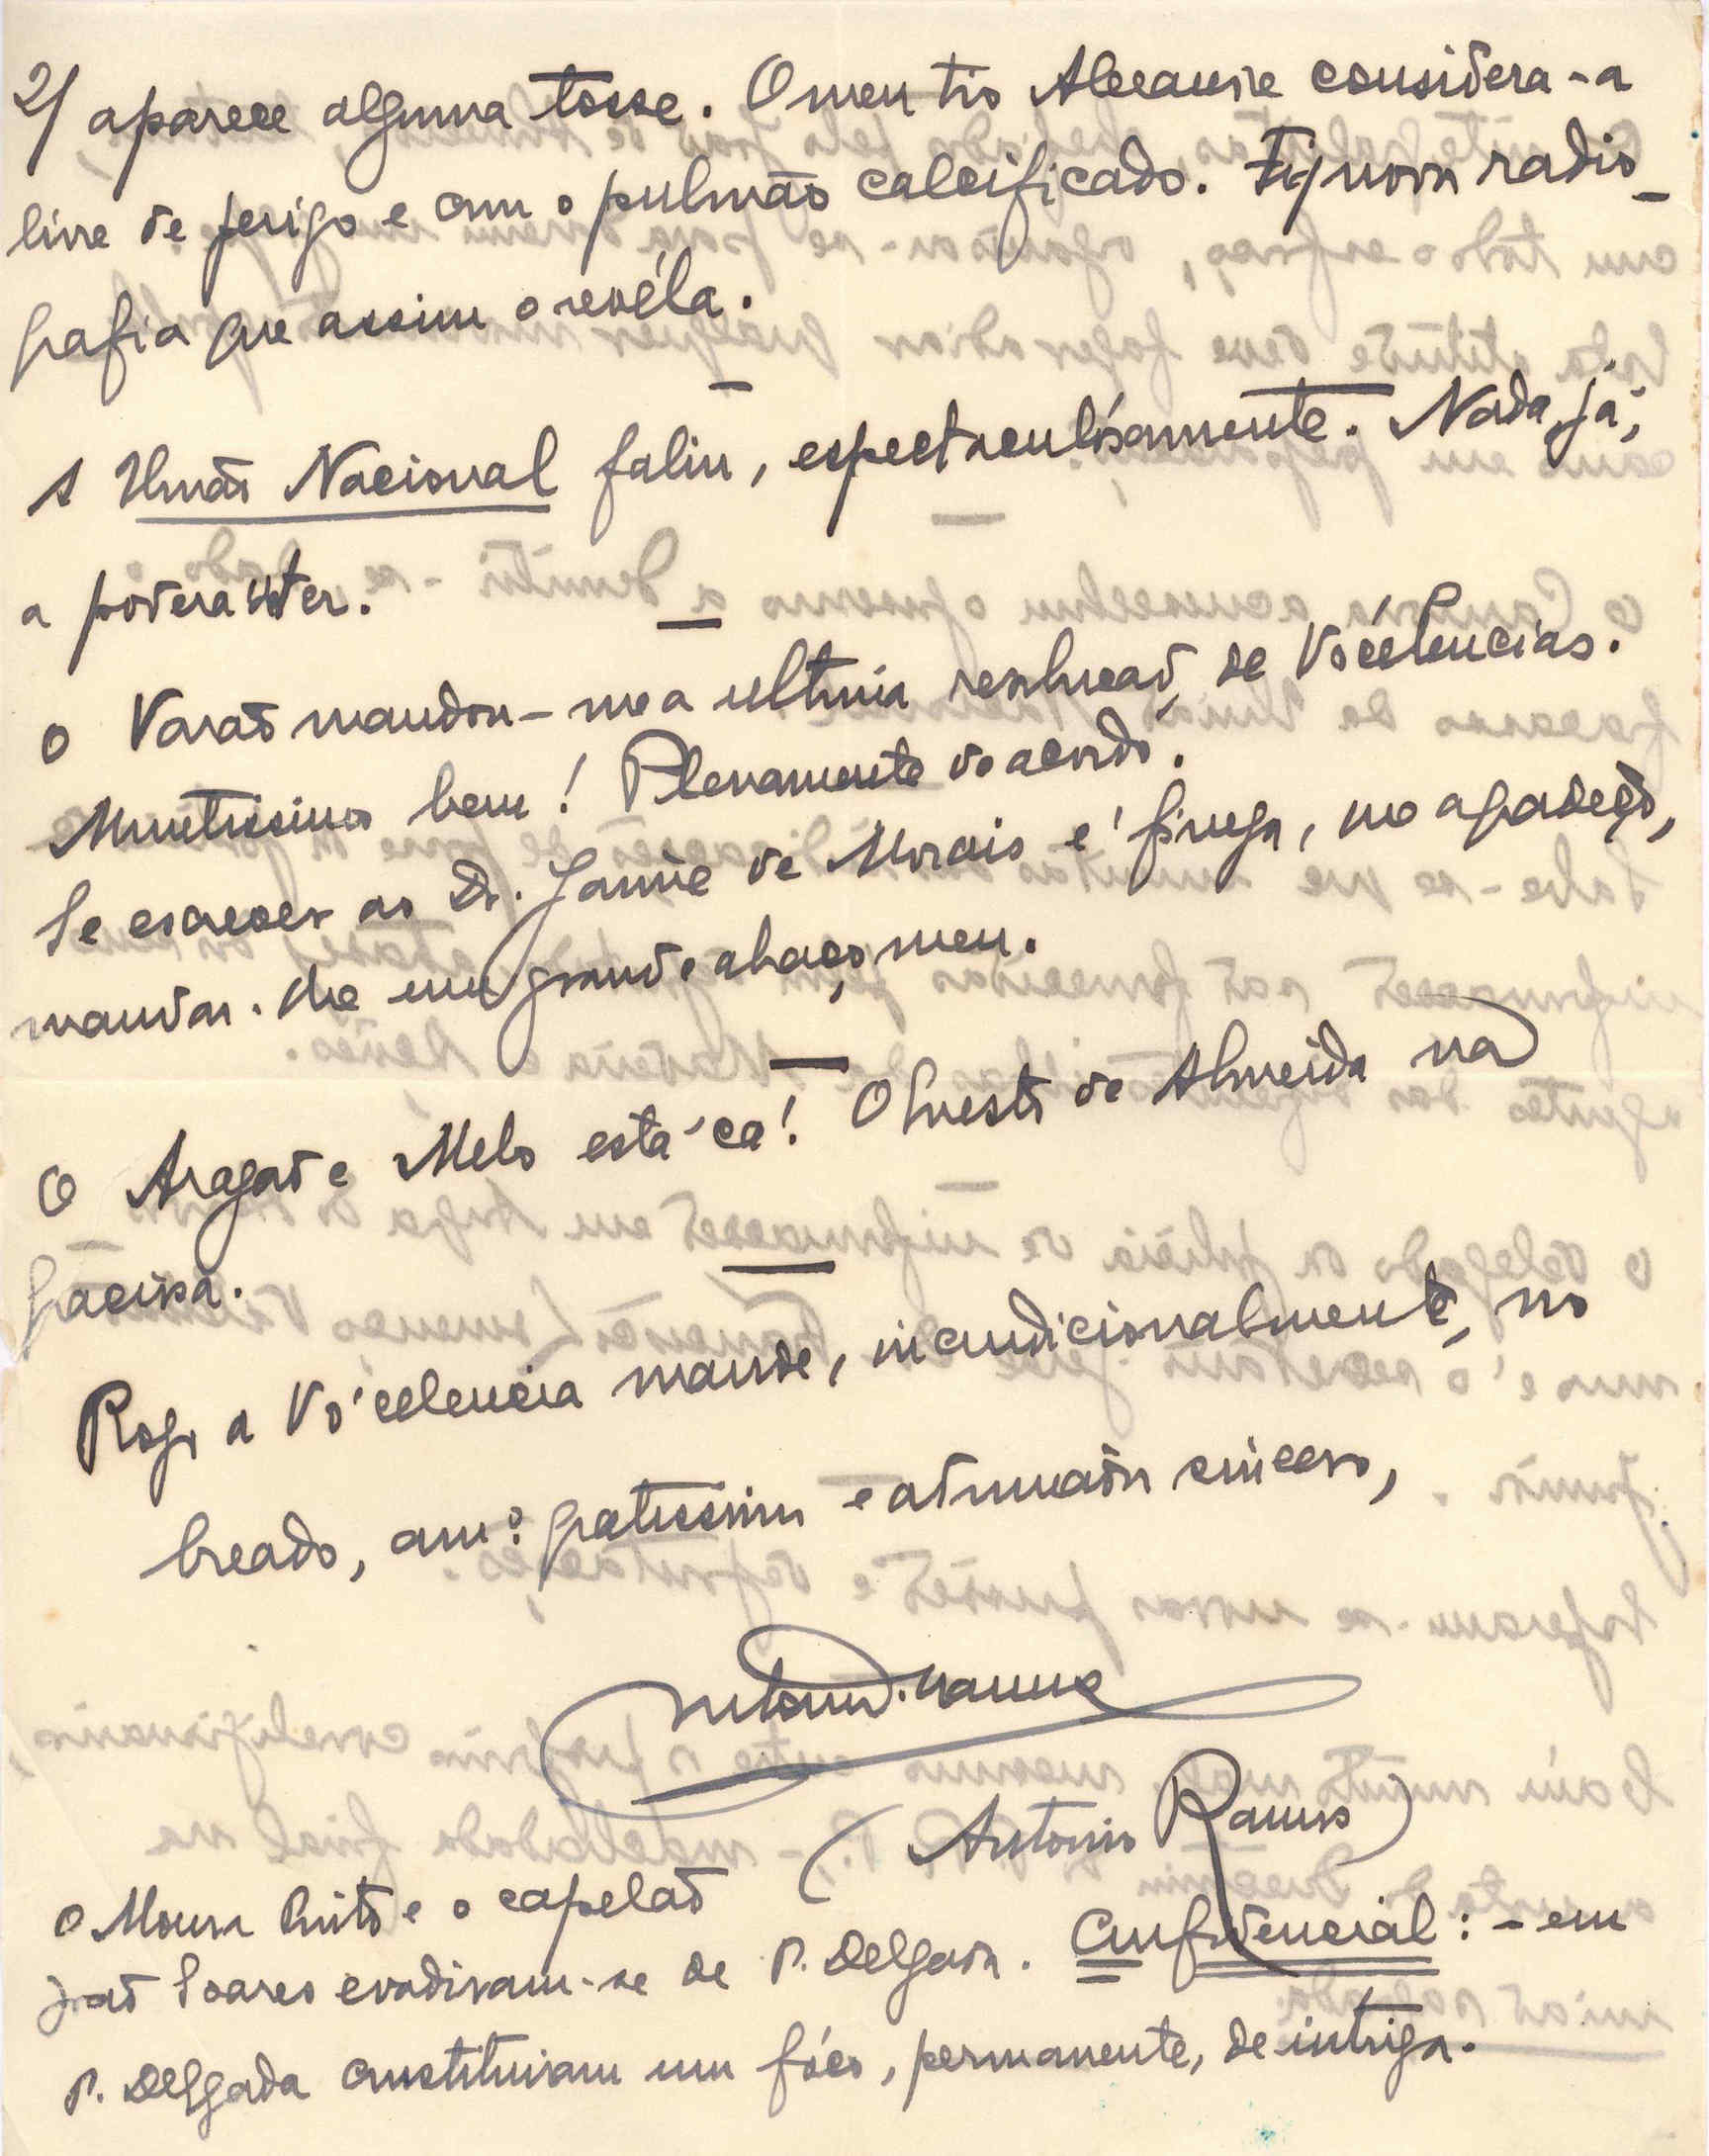 2/ aparece alguma tosse. O meu tio Alexandre considera-a
livre de perigo e com o pulmão calcificado. Fiz nova radio-
grafia que assim o revéla.
A União Nacional faliu, espectaculósamente. Nada, já,
a poderá
O Varão mandou-me a ultima resolução, de Vocelencias.
Muitissimo bem! Plenamente de acordo.
Se escrever ao Dr. Jaime de Morais e Pinega, no agradeço,
mandar-lhe um grande abraço, meu.
O Aragão e Melo está cá! O Presto de Almeida na
Graciosa.
Rogo a Vo'celencia mande, incondicionalmente, no
creado, amº gratissimo e admirador sincero,
Antonio Ramos
(Antonio Ramos)
O Moura Pinto e o capelão
João Soares evadiram-se de P. Delgada. Confidencial: - em
P. Delgada constituiam um fóco, permanente, de intriga.